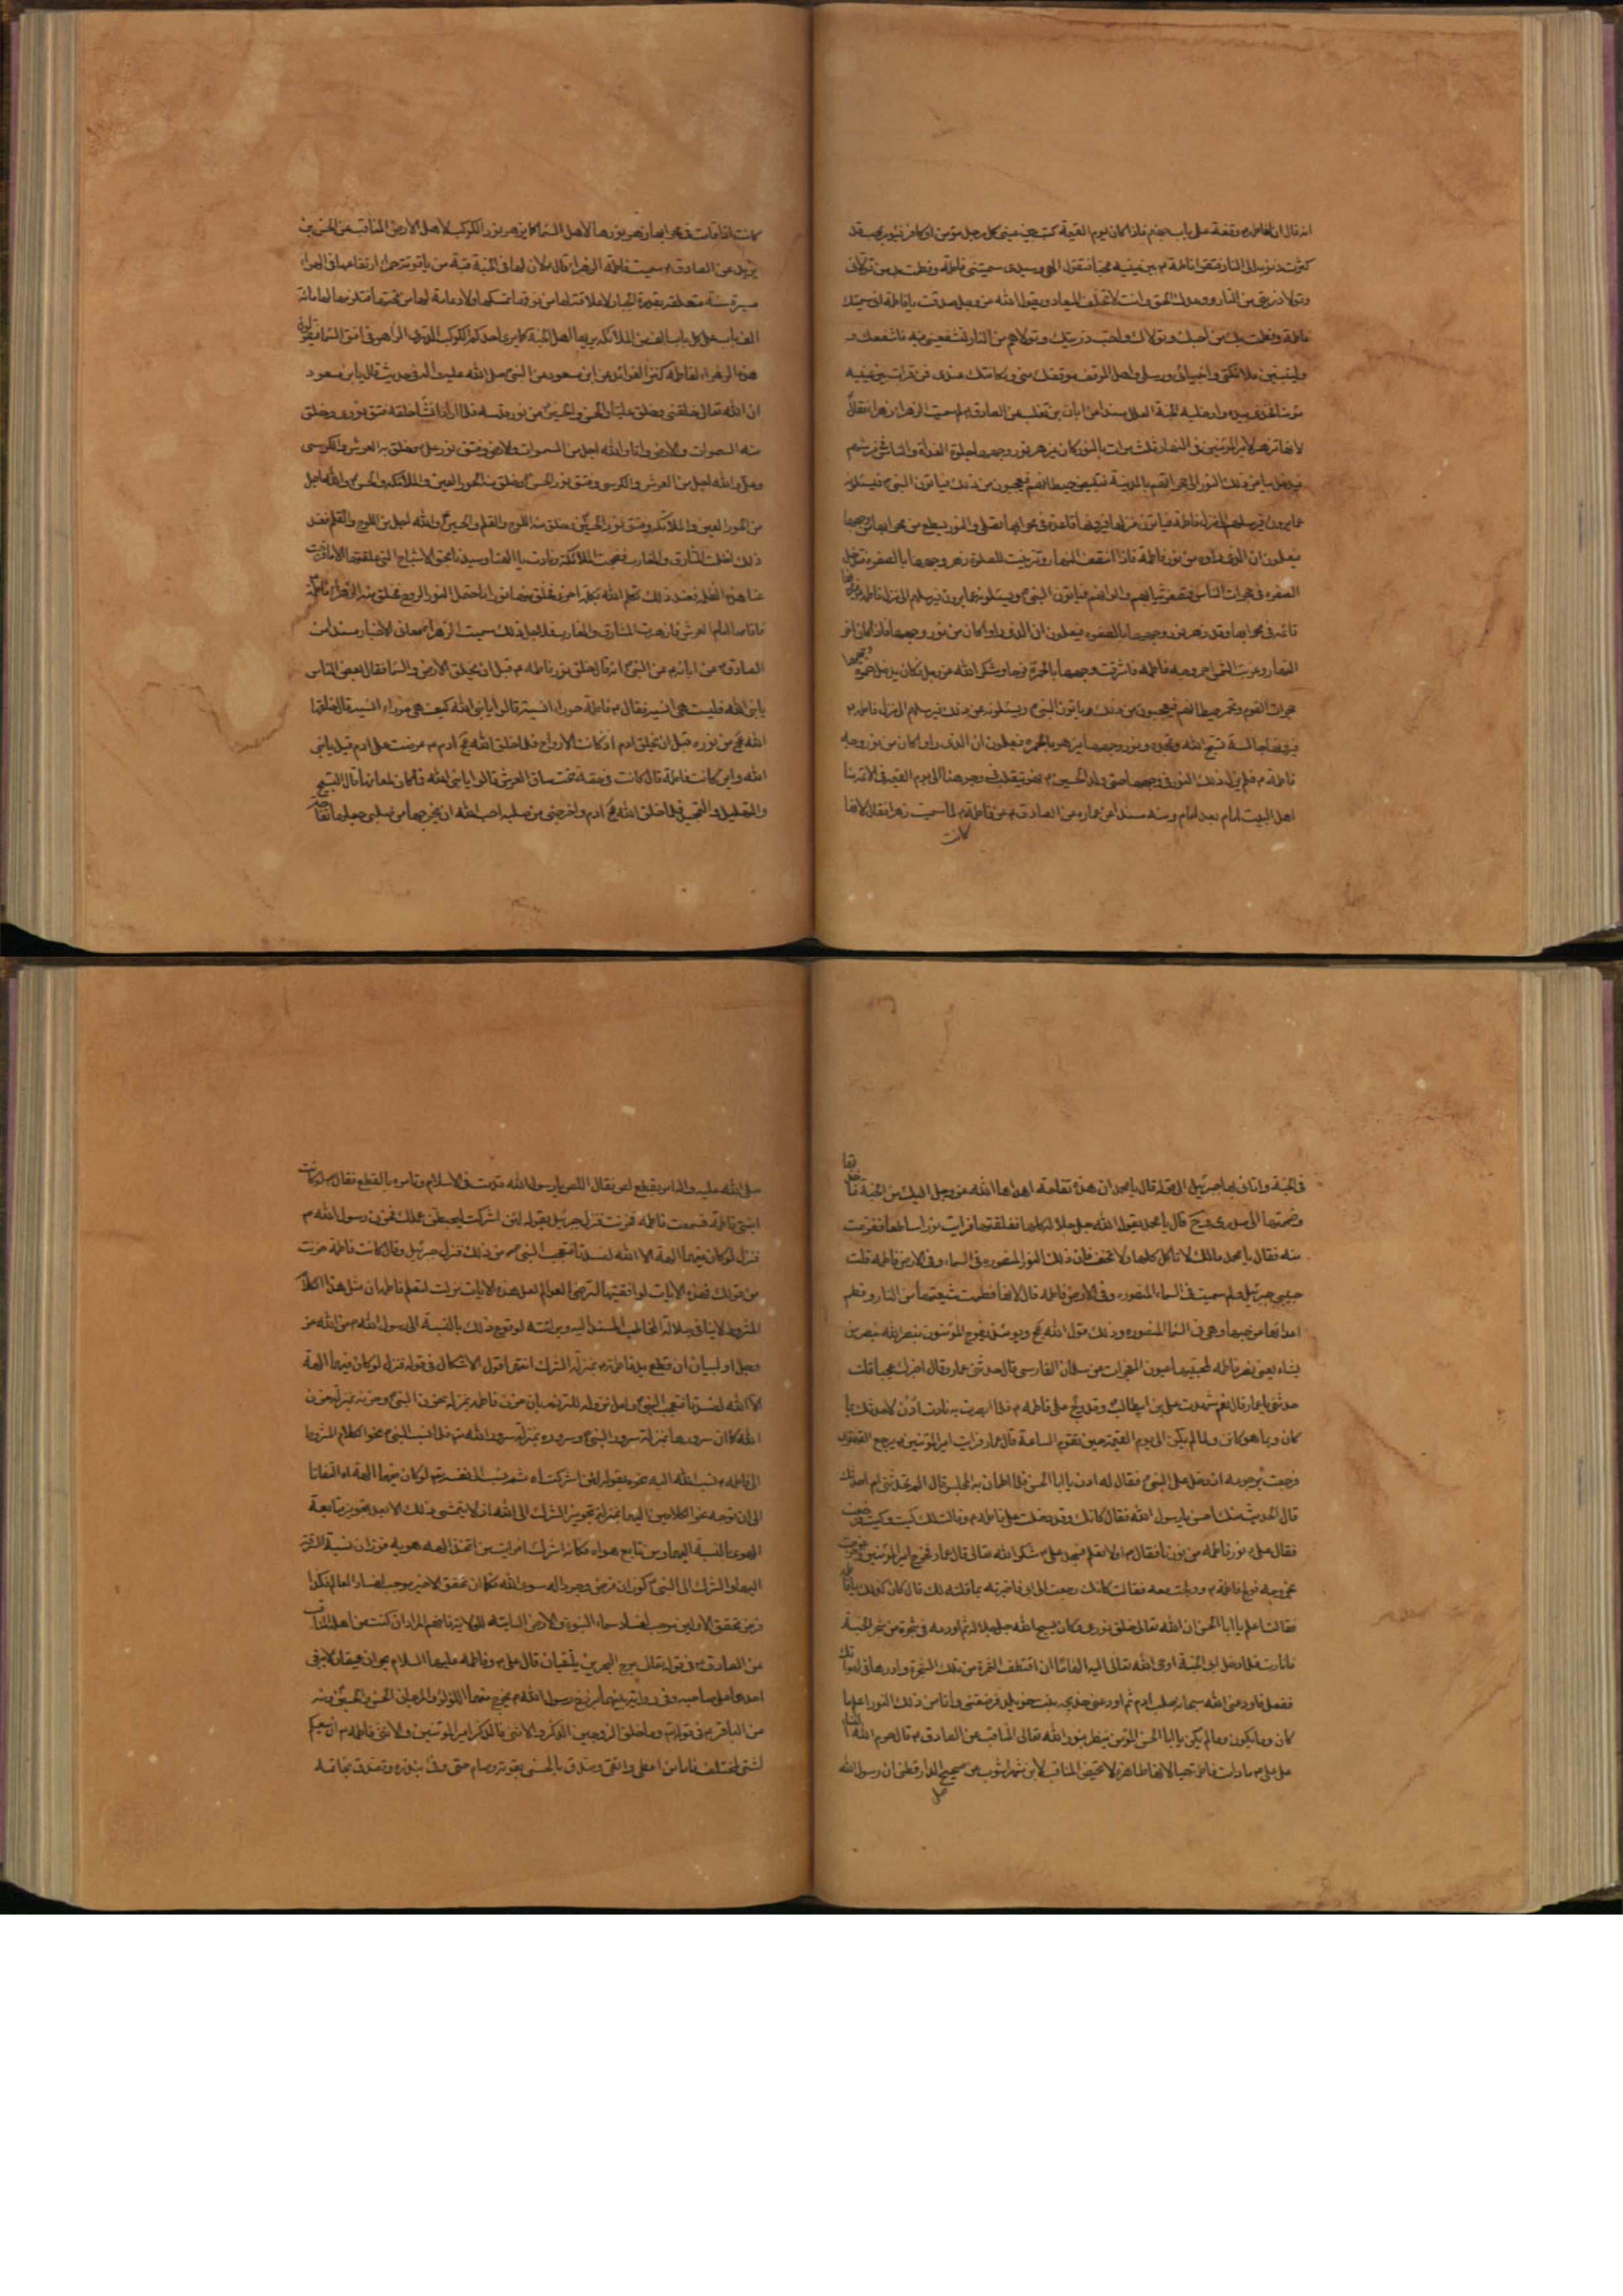 انه قال ان لفاطمة وقفة على باب جهنم فاذا كان يوم القيمة كتب بين عينى كل رجل مؤمن او كافر فيؤمر بمحب قد
كثرت ذنوبه الى النار فتقرأ فاطمة م بين عينيه محبا فتقول الهى وسيدى سميتنى فاطمة وفطمت بى من تولانى
وتولا ذريتى من النار ووعدك الحق وانت لا تخلف الميعاد ويقول الله عز وجل صدقت يا فاطمة انى سميتك
فاطمة وفطمت بك من احبك وتولاك واحب ذريتك وتولاهم من النار لتشفعينى فيه فاشفعك و
وليتبين ملائكتى وانبيائى ورسلى واهل الموقف موقفك منى ومكانتك عندى فمن قرأت بين عينيه
مؤمنا فخذى بيده وادخليه الجنة العلل مسندا عن ابان بن تغلب عن الصادق م لم سميت الزهراء زهراء فقال
لانها تزهر لامير المؤمنين فى النهار ثلث مرات بالنور كان يزهر نور وجهها صلوة الغداة والناس فى فرشهم
فيدخل بياض ذلك النور الى حجراتهم بالمدينة فتبيض حيطانهم فيعجبون من ذلك فياتون النبى م فيسئلونه
عما يرون فيرسلهم الى منزل فاطمة فياتون منزلها فيرونها قاعدة فى محرابها تصلى والنور يسطع من محرابها من وجهها
فيعلمون ان الذى راوه من نور فاطمة فاذا انتصف النهار وترتبت للصلوة زهر وجهها بالصفرة فتدخل
الصفرة فى حجرات الناس فتصفر ثيابهم والوانهم فياتون النبى م ويسئلونه عما يرون فيرسلهم الى منزل فاطمة فيرونها
قائمة فى محرابها وقد زهر نور وجهها بالصفرة فيعلمون ان الذى راوا كان من نور وجهها فاذا كان اخر
النهار وغربت الشمس احمر وجه فاطمة فاشرقت وجهها بالحمرة فرحا وشكرا لله عز وجل فكان يدخل حمرة وجهها
حجرات القوم وتحمر حيطانهم فيعجبون من ذلك وياتون النبى م ويسئلونه عن ذلك فيرسلهم الى منزل فاطمة م
فيرونها جالسة تسبح الله وتمجده ونور وجهها يزهر بالحمرة فيعلمون ان الذى راوا كان من نور وجه
فاطمة م فلم يزل ذلك النور فى وجهها حتى ولد الحسين م فهو يتقلب فى وجوهنا الى يوم القيمة فى الائمة منا
اهل البيت امام بعد امام ومنه مسندا عن عماره عن الصادق م عن فاطمة م لم سميت زهراء فقال لانها
كانت
كانت اذا قامت فى محرابها زهر نورها لاهل السماء كما يزهر نور الكوكب لاهل الارض المناقب عن الحسن بن
يزيد عن الصادق م سميت فاطمة الزهراء قال لان لها فى الجنة قبة من ياقوتة حمراء ارتفاعها فى الهواء
مسيرة سنة متعلقة بقدرة الجبار لا علاقة لها من فوقها فتمسكها ولا دعامة لها من تحتها فتلزمها لها مائة
الف باب على كل باب الف من الملائكة يريها اهل الجنة كما يرى احدكم الكوكب الدرى الزاهر فى افق السماء فيقولون
هذه الزهراء لفاطمة كنز الفوائد عن ابن مسعود عن النبى صلى الله عليه واله فى حديث قال يا بن مسعود
ان الله تعالى خلقنى وخلق عليا والحسن والحسين من نور قدسه فلما اراد ان ينشأ خلقه فتق نورى وخلق
منه السموات والارض وانا والله اجل من السموات والارض وفتق نور على م وخلق به العرش والكرسى
وعلى والله اجل من العرش والكرسى وفتق نور الحسن وخلق منه الحور العين والملائكة والحسن والله اجل
من الحور العين والملائكة وفتق نور الحسين وخلق منه اللوح والقلم والحسين والله اجل من اللوح والقلم فعند
ذلك اظلمت المشارق والمغارب فضجت الملائكة ونادت يا الهنا وسيدنا بحق الاشباح التى خلقتها الا ما فرجت
عنا هذه الظلمة فعند ذلك تكلم الله بكلمة اخرى فخلق منها نورا فاحتمل النور الروح فخلق منه الزهراء فاطمة
فاقامها امام العرش فازهرت المشارق والمغارب فلاجل ذلك سميت الزهراء معانى الاخبار مسندا عن
الصادق م عن ابائه م عن النبى م انه قال خلق نور فاطمة م قبل ان يخلق الارض والسماء فقال بعض الناس
يا نبى الله فليست هى انسية فقال م فاطمة حوراء انسية قالوا يا نبى الله كيف هى حوراء انسية قال خلقها
الله عج من نوره قبل ان يخلق ادم اذ كانت الارواح فلما خلق الله عج ادم م عرضت على ادم قيل يا نبى
الله واين كانت فاطمة قال كانت فى حقة تحت ساق العرش قالوا يا نبى الله فما كان طعامها قال التسبيح
والتهليل والتحميد فلما خلق الله عج ادم واخرجنى من صلبه احب الله ان يخرجها من صلبى جعلها تفاحة
فى الجنة واتانى بها جبرئيل الى قوله قال يا محمد ان هذه تفاحة اهداها الله عز وجل اليك من الجنة فاخذتها
وضممتها الى صدرى وح قال يا محمد يقول الله جل جلاله كلها ففلقتها فرايت نورا ساطعا ففزعت
منه فقال يا محمد مالك لا تاكل كلها ولا تخف فان ذلك النور المنصورة فى السماء وفى الارض فاطمة قلت
حبيبى جبرئيل ولم سميت فى السماء المنصورة وفى الارض فاطمة قال لانها فطمت شيعتها من النار وفطم
اعدائها عن حبها وهى فى السماء المنصورة وذلك قول الله عج ويومئذ يفرح المؤمنون بنصر الله ينصر من
يشاء يعنى نصر فاطمة لمحبيها عيون المعجزات عن سلمان الفارسى قال حدثنى عمار وقال اخبرك عجبا قلت
حدثنى يا عمار قال نعم شهدت على بن ابيطالب م وقد ولج على فاطمة م فلما ابصرت به نادت ادن لاحدثك بما
كان وبما هو كائن وبما لم يكن الى يوم القيمة حين تقوم الساعة قال عمار فرايت امير المؤمنين م يرجع القهقرى
فرجعت برجوعه اذ دخل على النبى م فقال له ادن يا ابا الحسن فلما اطمان به المجلس قال له تحدثنى ام احدثك
قال الحديث منك احسن يا رسول الله فقال كانك وقد دخلت على فاطمة م وقالت لك كيت وكيت فرجعت
فقال على م نور فاطمة من نورنا فقال م اولا تعلم فسجد على م شكرا لله تعالى قال عمار فخرج امير المؤمنين وخرجت
بخروجه فولج فاطمة م وولجت معه فقالت كانك رجعت الى ابى فاخبرته بما قلته لك قال كان كذلك يا فاطمة
فقالت اعلم يا ابا الحسن ان الله تعالى خلق نورى وكان يسبح الله جل جلاله ثم اودعه فى شجرة من شجر الجنة
فاضاءت فلما دخل ابى الجنة اوحى الله تعالى اليه الهاما ان اقتطف الثمرة من تلك الشجرة وادرها فى لهواتك
ففعل فاودعنى الله سبحانه صلب ابى م ثم اودعنى خديجة بنت خويلد فوضعتنى وانا من ذلك النور اعلم ما
كان وما يكون وما لم يكن يا ابا الحسن المؤمن ينظر بنور الله تعالى المناقب عن الصادق م قال حرم الله النساء
على على م مادامت فاطمة حية لانها طاهرة لا تحيض المناقب لابن شهراشوب عن صحيح الدارقطنى ان رسول الله
صلى
صلى الله عليه واله امر بقطع لص فقال اللص يا رسول الله قدمته فى الاسلام وتامره بالقطع فقال م لو كانت
ابنتى فاطمة فسمعت فاطمة فحزنت فنزل جبرئيل بقوله لئن اشركت ليحبطن عملك فحزن رسول الله م
فنزل لو كان فيهما الهة الا الله لفسدتا فتعجب النبى م من ذلك فنزل جبرئيل وقال كانت فاطمة حزنت
من قولك فهذه الايات لموافقتها لترضى
المشروط لا ينافى جلالة المخاطب والمسند اليه وبرائته لوقوع ذلك بالنسبة الى رسول الله م من الله عز
وجل او لبيان ان قطع يد فاطمة م بمنزلة الشرك انتهى اقول الاشكال فى قوله فنزل لو كان فيهما الهة
الا الله لفسدتا فتعجب النبى م ولعل نزوله للتنبيه بان حزن فاطمة بمنزلة حزن النبى م وحزنه بمنزلة حزن
الله كما ان سرورها بمنزلة سرور النبى م وسروره بمنزلة سرور الله ثم فلما نسب النبى م نحو الكلام المشروط
الى فاطمة م نسب الله اليه نحوه بقوله لئن اشركت اه ثم نسب الى نفسه ثم لو كان فيهما الهة اه التفاتا
الى ان توجه نحو الكلامين اليهما بمنزلة تجويز الشرك الى الله اذ لا يتمشى ذلك الا بعد تجويز متابعة
الهوى بالنسبة اليهما ومن تابع هواه فكانه اشرك افرايت من اتخذ الهه هويه فوزان نسبة السرقة
اليها والشرك الى النبى م كوزان فرض وجود اله سوى الله فكما ان تحقق الاخير يوجب لفساد العالم فكذا
فرض تحقق الاولين يوجب لفساد سماء النبوة والارض
عن الصادق م فى قوله تعالى مرج البحرين يلتقيان قال على م وفاطمة عليهما السلام بحران عميقان لا يبغى
احدهما على صاحبه وفى رواية بينهما برزخ رسول الله م يخرج منهما اللؤلؤ والمرجان الحسن والحسين ومنه
عن الباقر م فى قوله ثم وما خلق الزوجين الذكر والانثى فالذكر امير المؤمنين والانثى فاطمة م ان سعيكم
لشتى لمختلف فاما من اعطى واتقى وصدق بالحسنى بقوته وصام حتى وفى بنذره وتصدق بخاتمه